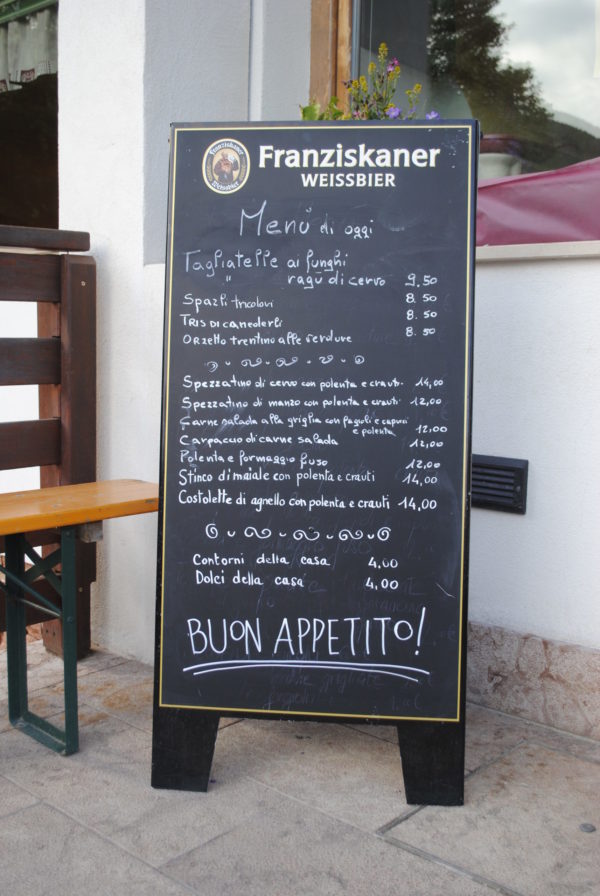 Franziskaner
WEISSBIER
Franziskaner
Weissbier
Menù di oggi
Tagliatelle ai funghi
" ragù di cervo 9.50
Spazli tricolori 8.50
TRIS DI CANEDERLI 8.50
ORZETTO TRENTINO ALLE VERDURE 8.50
Spezzatino di cervo con polenta e crauti 14,00
Spezzatino di manzo con polenta e crauti 12,00
Carne salada alla griglia con fagioli e capucci
e polenta 12,00
Carpaccio di carne salada 12,00
Polenta e formaggio fuso 12,00
Stinco di maiale con polenta e crauti 14,00
Costolette di agnello con polenta e crauti 14,00
Contorni della casa 4,00
Dolci della casa 4,00
BUON APPETITO!